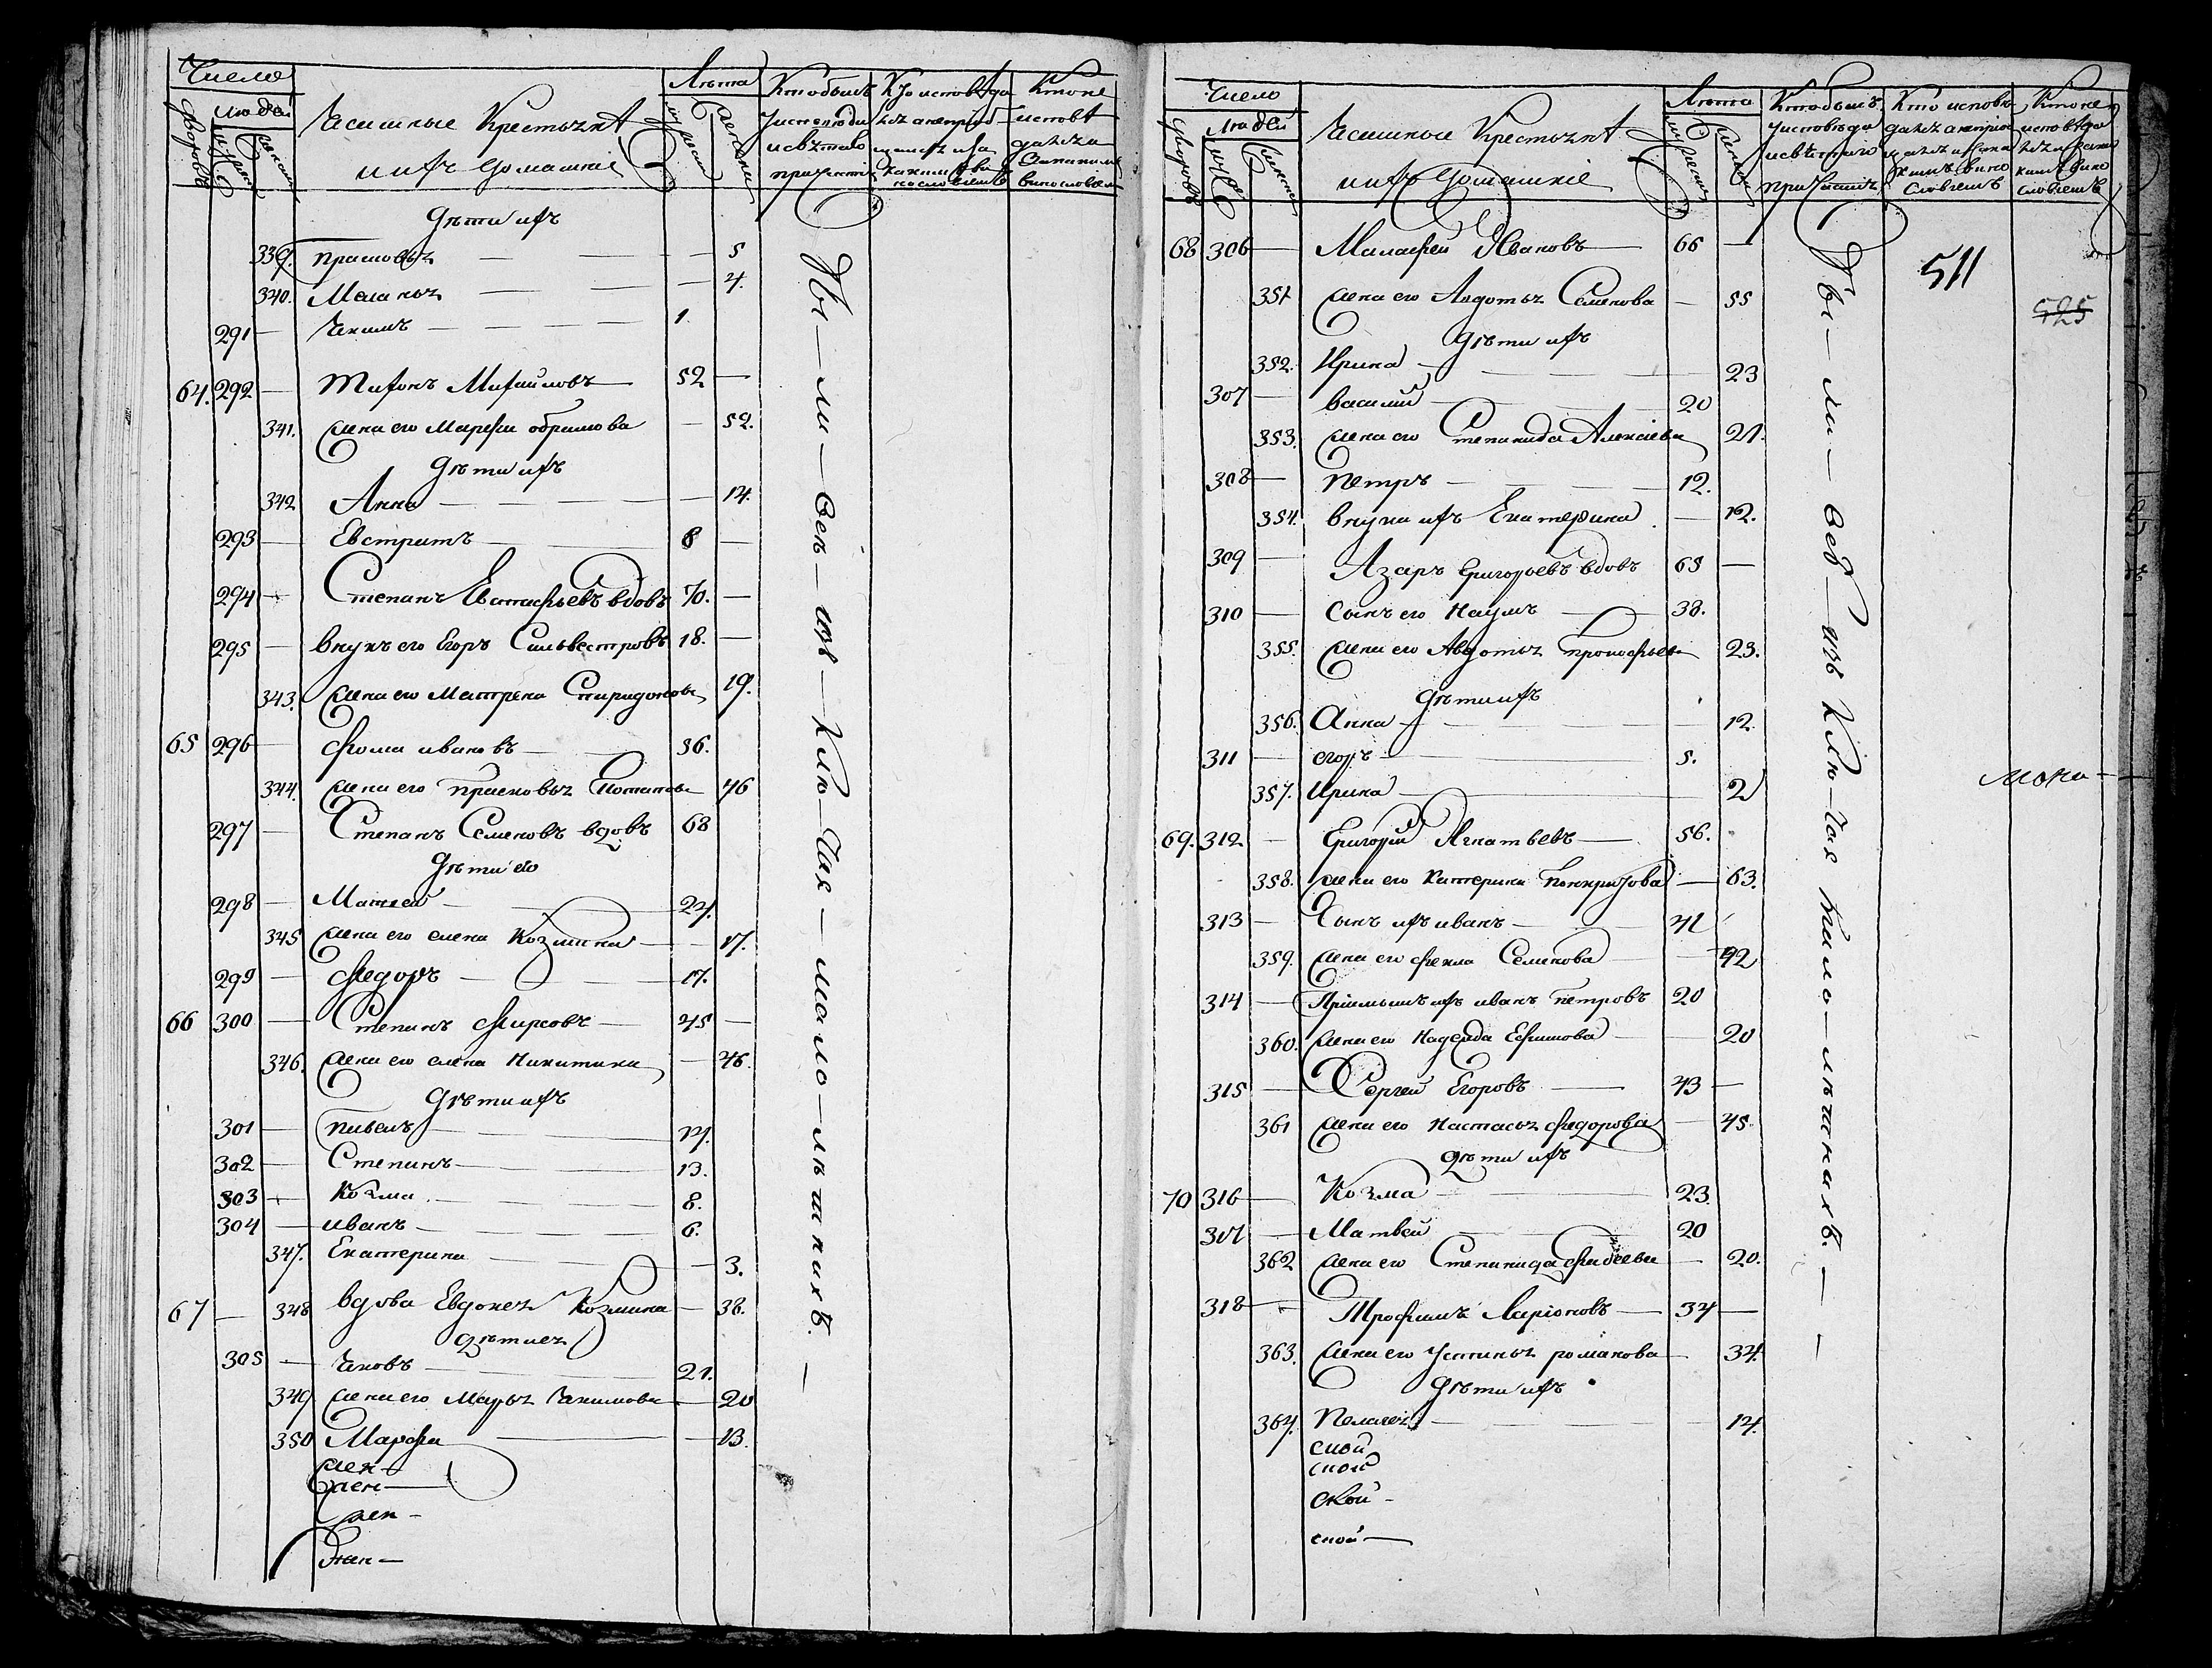 Число
людей
дворовъ
мужеска
женска
Ясашные Крестьянѣ
ихъ домашніе
Лѣта
мужеска
женска
Кто былъ
у исповѣди
и святаго
причастія
Кто исповѣда
лся а не прич
Кто не
исповѣ
дался
дѣти ихъ
339. прасковья — 5
340. Марья — 4.
291 — Якимъ — 1.
64. 292 — Тихонъ Михайловъ — 52 —
341. жена его Марфа Абрамова — 52.
дѣти ихъ
342 Анна — 14.
293 — Евстратъ — 8 —
294 — Степанъ Евстафьевъ вдовъ 70. —
295 — внукъ его Егоръ Сильвестровъ 18. —
343. жена его Матрена Спиридонова 19.
65 296 — Фома ивановъ — 36.
344. жена его Прасковья Потапова 46
297 — Степанъ Семеновъ вдовъ 68
дѣти его
298 — Матвей — 24.
345 жена его елена Козмина — 17.
299 — Федоръ — 17.
66 300 — Степанъ Фирсовъ — 45 —
346. жена его елена Никитина — 46.
дѣти ихъ
301 — Павелъ — 14.
302 — Степанъ — 13.
303 — Козма — 8.
304 — иванъ — 6.
347. Екатерина — 3.
67 — 348 вдова Евдокея Козмина — 38.
дѣти ея
305 — Яковъ — 21.
349 жена его Марья Якимова — 20
350 Марфа — 13.
жен —
жен —
жен —
жен —
Бы — ли — всѣ — изъ — клю — чая — мало — лѣтнихъ. —
Число
людей
дворовъ
мужеска
женска
Ясашные Крестьянѣ
ихъ домашніе
Лѣта
мужеска
женска
Кто былъ
у исповѣди
и святаго
причастія
Кто исповѣ
дался а не прич
Кто не
исповѣда
лся
68 306 — Малафей Ивановъ — 66 —
351 жена его Авдотья Семенова — 55
дѣти ихъ
352. Ирина — 23
307 — василий — 20
353. жена его Степанида Алексіева 21.
308 — Петръ — 12.
354. внука ихъ Екатерина — 12.
309 — Азаръ Григорьевъ вдовъ 65 —
310 — Сынъ его Наумъ — 38.
355. жена его Авдотья Прокофьева 23.
дѣти ихъ
356. Анна — 12.
311 — егоръ — 5.
357. Ирина — 2
69. 312 — Григорій Игнатьевъ — 56.
358. жена его Катерина Понкратова — 63.
313 — Сынъ ихъ иванъ — 41
359. жена его Фекла Семенова — 42
314 — Пріемышъ ихъ иванъ Петровъ 20
360. жена его Надежда Ефимова — 20
315 — Сергей Егоровъ — 43 —
361 жена его Настасья Федорова — 45.
дѣти ихъ
70 316 — Козма — 23
317 — Матвей — 20
362 жена его Степанида Фадеева — 20.
318 — Трофимъ Ларіоновъ — 34 —
363. жена его Устинья романова — 34.
дѣти ихъ
364. Пелагея — 14.
ской
ской
ской —
ской —
Бы — ли — всѣ — изъ клю — чая мало — лѣтнихъ. —
511
525